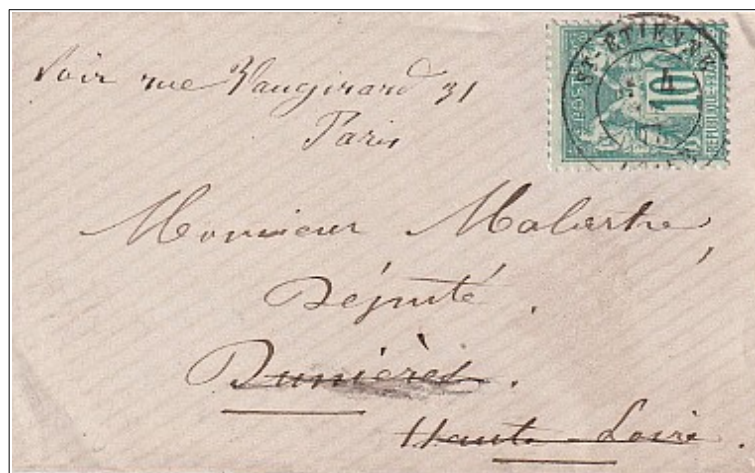 Voir rue Vaugirard 31
Paris
ST-ETIENNE
4
POSTE
10
REPUBLIQUE FRAN
Monsieur Malartre,
Député.
Dunières.
Haute-Loire.